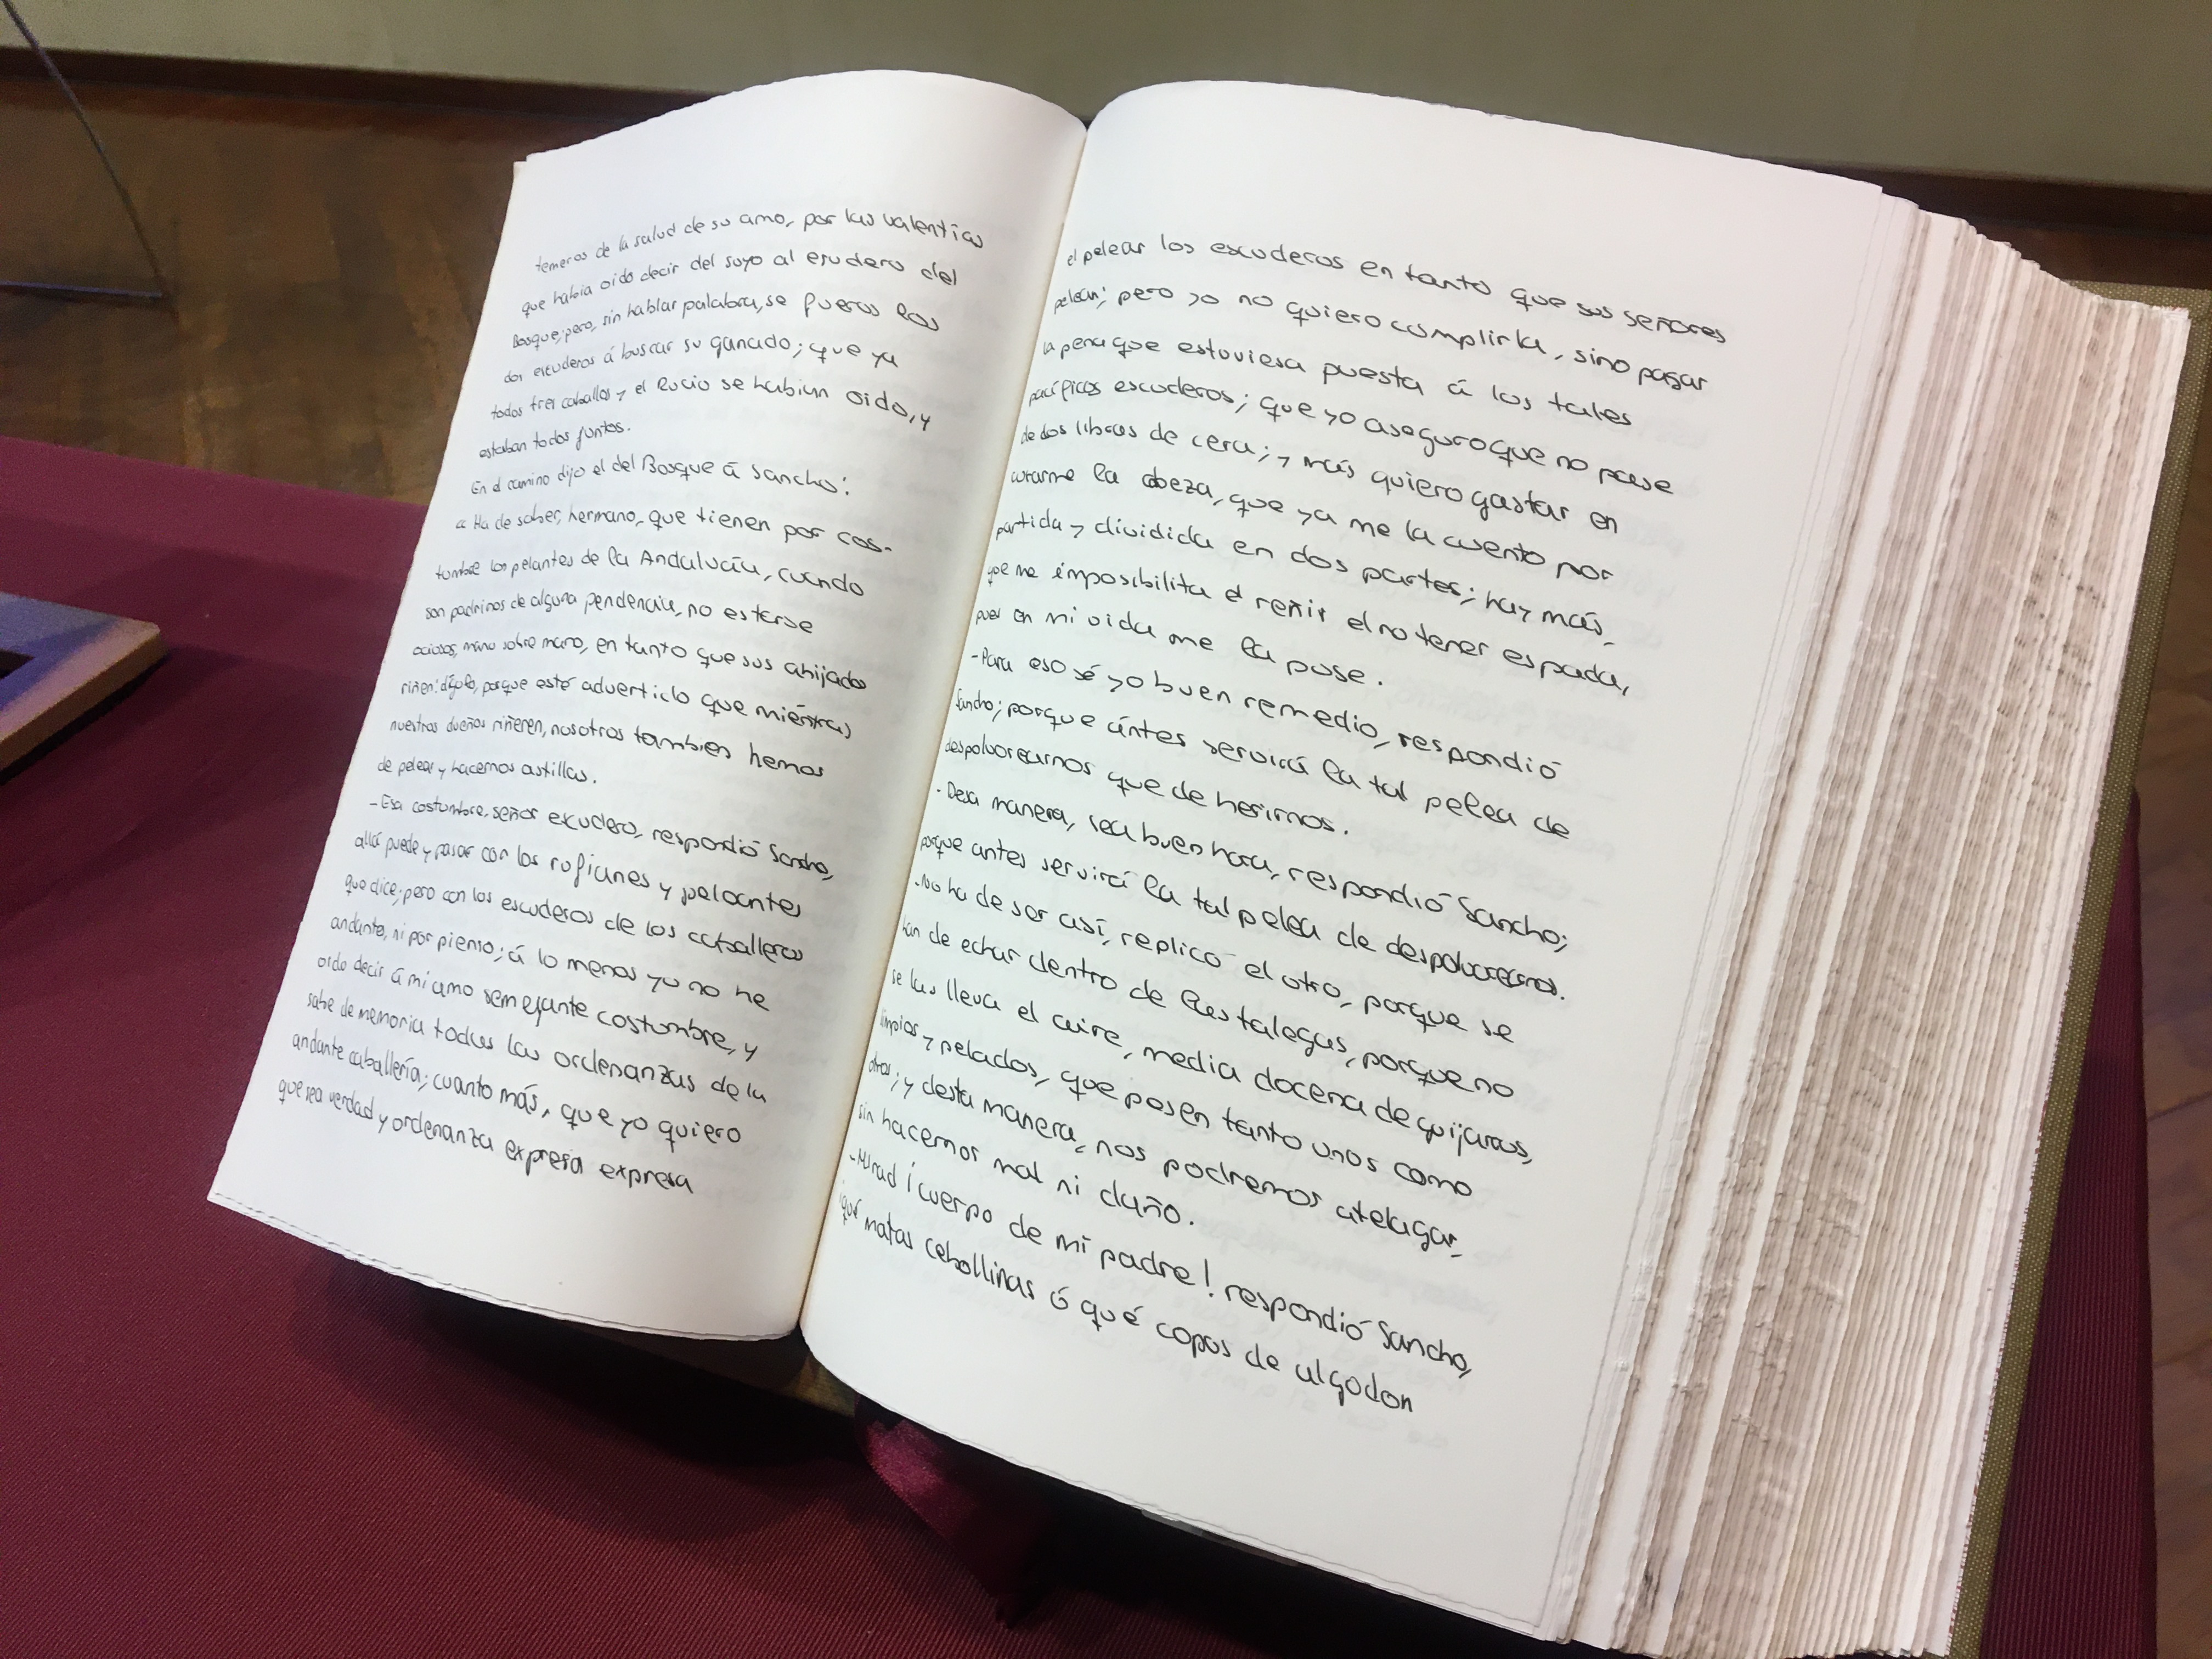 temeros de la salud de su amo, por las valentias
que habia oido decir del suyo al esudero del
Bosque; pero, sin hablar palabra, se fueros los
dos escuderos á buscar su ganado; que ya
todos tres caballos y el Rucio se habian oido, y
estaban todos juntos.
En el camino dijo el del Bosque á Sancho:
« Ha de saber, hermano, que tienen por cos-
tumbre los pelantes de la Andalucía, cuando
son padrinos de alguna pendencia, no estarse
ociosos, mano sobre mano, en tanto que sus ahijados
riñen: dígolo, porque esté advertido que miéntras
nuestros dueños riñeren, nosotros tambien hemos
de pelear y hacernos astillas.
-Esa costumbre, señor escudero, respondió Sancho,
allá puede y pasar con los rufianes y peleantes
que dice; pero con los escuderos de los caballeros
andante, ni por pienso; á lo menos yo no he
oido decir á mi amo semejante costumbre, y
sabe de memoria todas las ordenanzas de la
andante caballería; cuanto más, que yo quiero
que sea verdad y ordenanza expresa expresa
el pelear los escuderos en tanto que sus señores
peleán; pero yo no quiero cumplirla, sino pagar
la pena que estuviesa puesta á los tales
pacíficos escuderos; que yo aseguro que no pase
de dos libras de cera; y más quiero gastar en
curarme la cabeza, que ya me la cuento por
partida y dividida en dos partes; hay más,
que me imposibilita el reñir el no tener espada,
pues en mi vida me la puse.
-Para eso sé yo buen remedio, respondió
Sancho; porque ántes servirá la tal pelea de
despolvorearnos que de herirnos.
-Desa manera, sea buen hora, respondió Sancho;
porque antes servirá la tal pelea de despolvorearnos.
-No ha de ser así, replicó el otro, porque se
han de echar dentro de las talegas, porque no
se las lleva el aire, media docena de guijarros,
limpios y pelados, que pesen tanto unos como
otros; y desta manera, nos podremos atelagar,
sin hacernos mal ni daño.
-Mirad ¡cuerpo de mi padre! respondió Sancho,
¡qué matas cebollinas ó qué copos de algodon